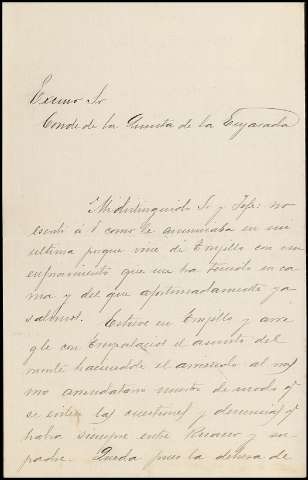 Excmo Sr
Conde de la Quinta de la Enjarada
Mi distinguido Sr y Jefe: no
escribí á V como le anunciaba en mi
ultima porque vine de Trujillo con un
enfriamiento que me ha tenido en ca-
ma y del que afortunadamente ya
salimos. Estuve en Trujillo y arre
gle con el asunto del
monte haciendole el arriendo al mis
mo arrendatario de modo q
se eviten las cuestiones y denuncias q
habia siempre entre y su
padre. Queda pues la dehesa de